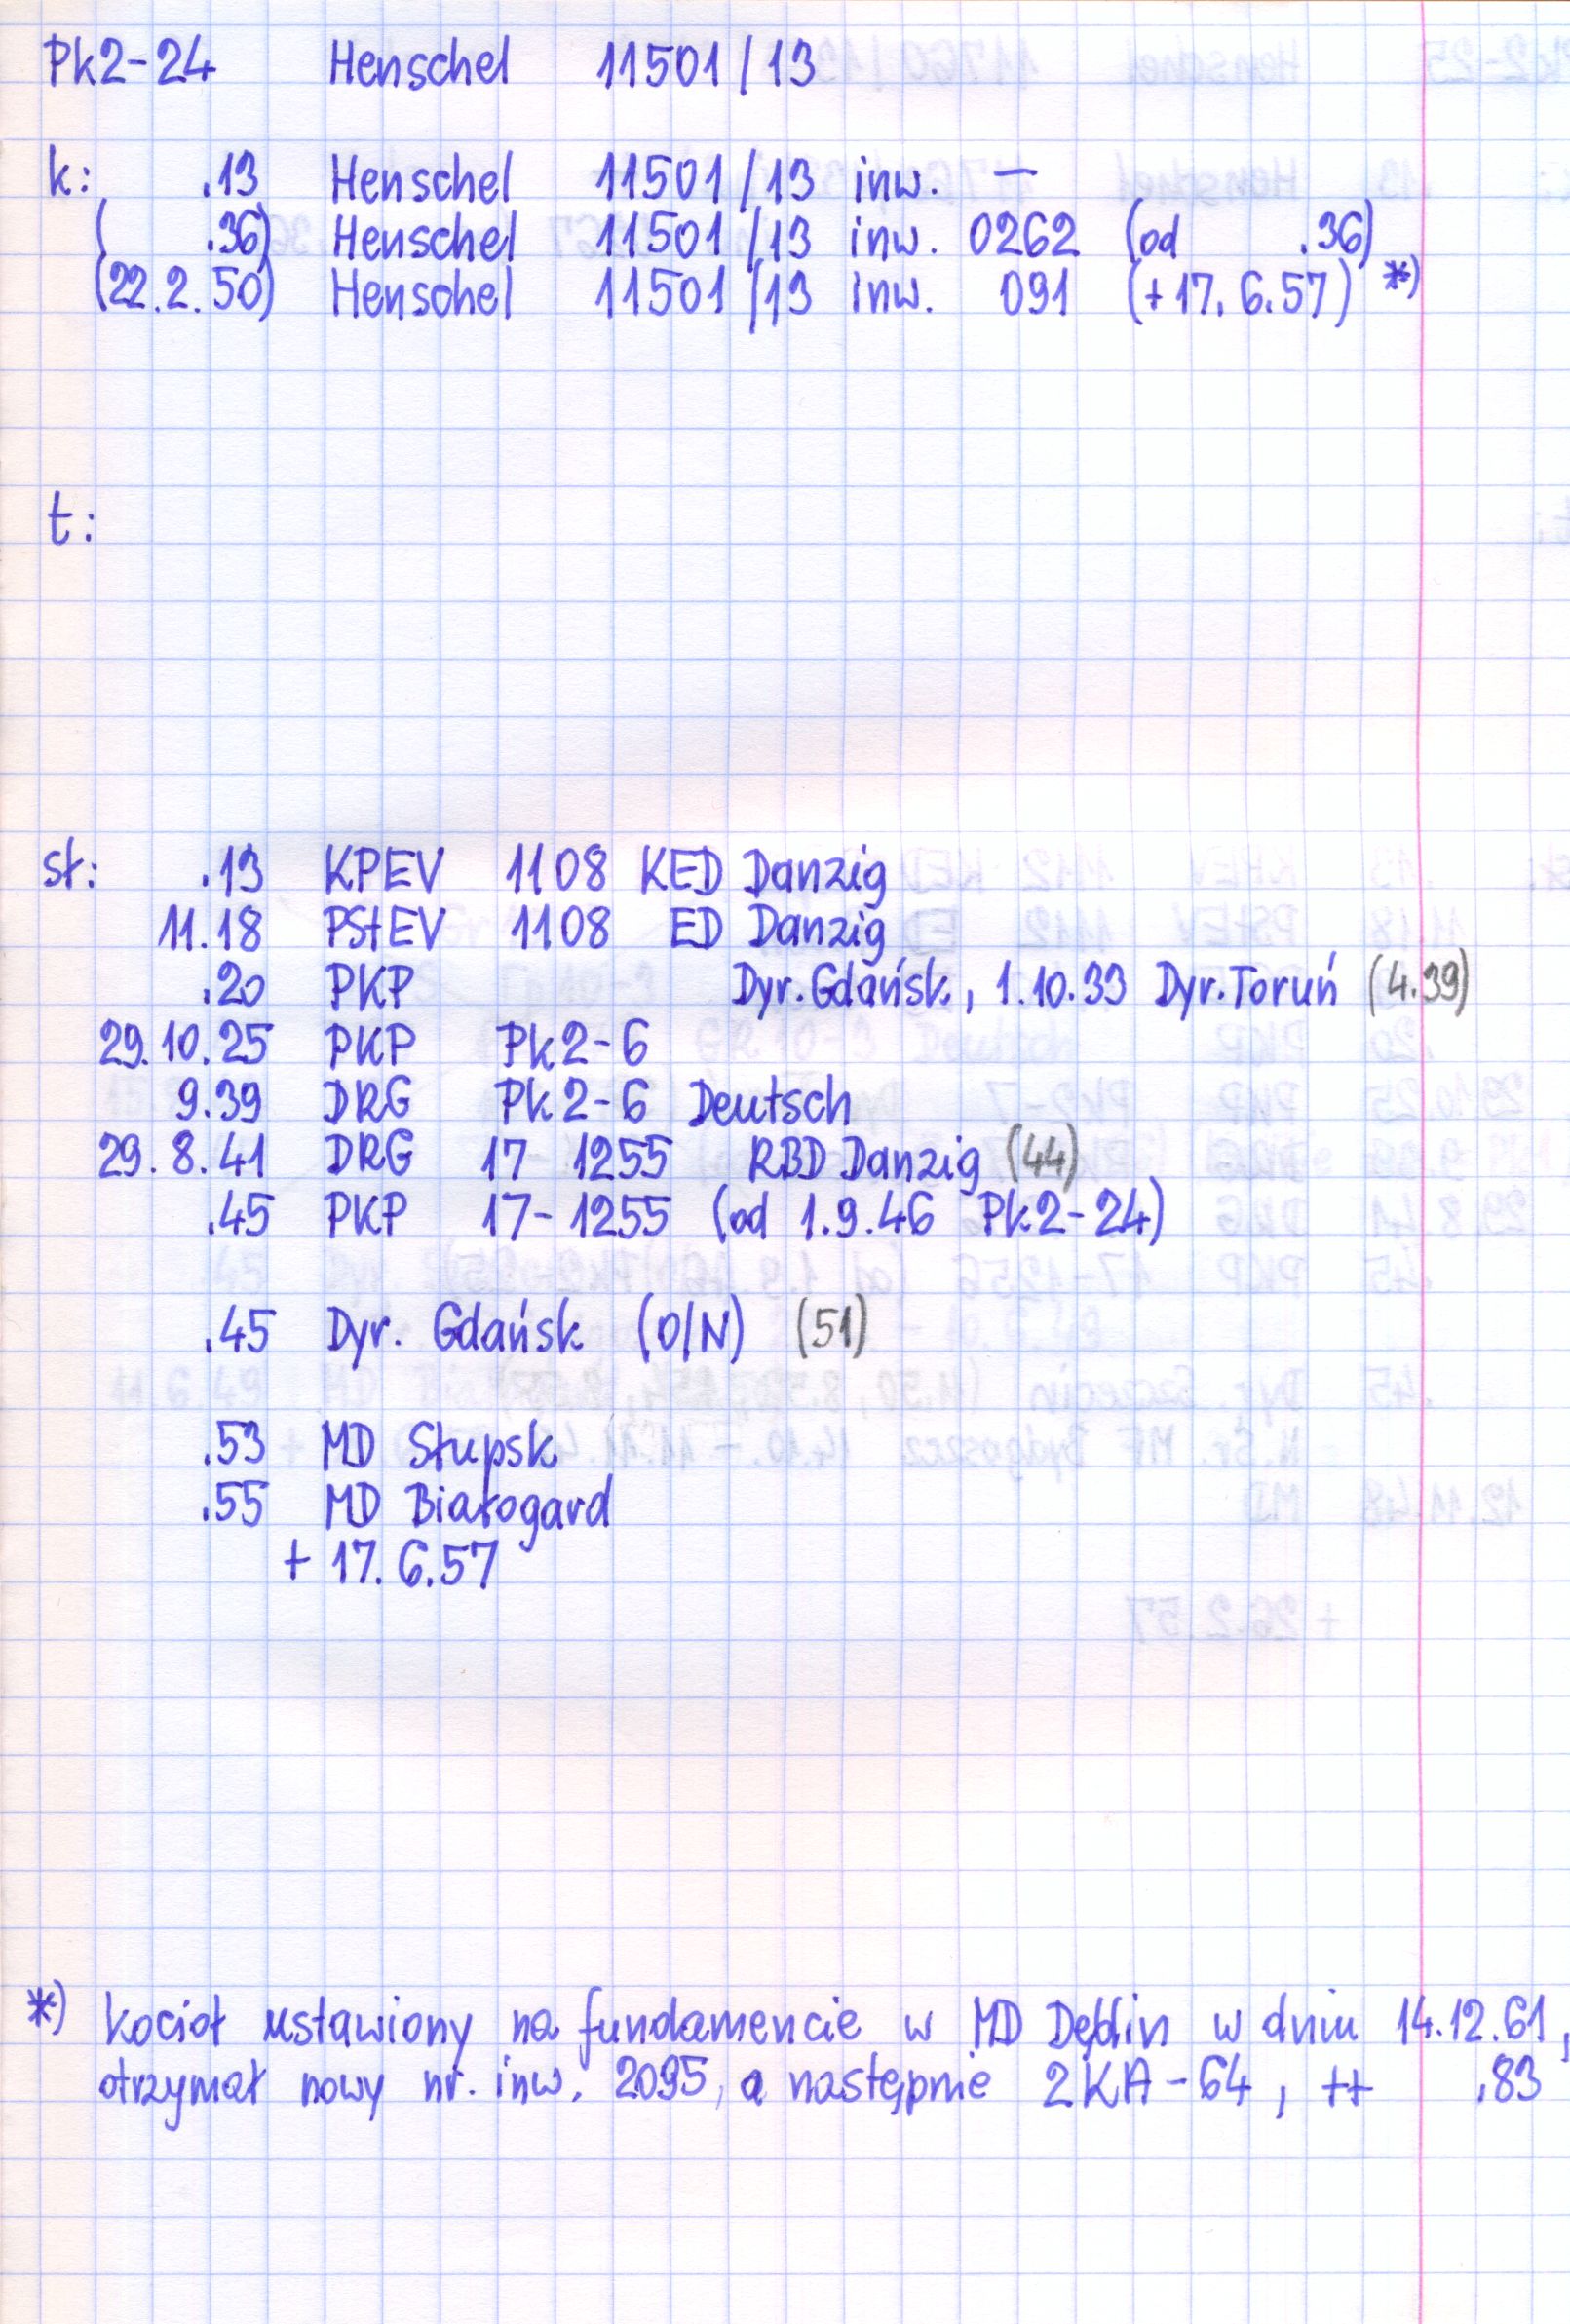 Pk2-24 Henschel 11501/13
k: .13 Henschel 11501/13 inw. —
( .36) Henschel 11501/13 inw. 0262 (od .36)
(22.2.50) Henschel 11501/13 inw. 091 (+17.6.57) *)
t:
st: .13 KPEV 1108 KED Danzig
11.18 PStEV 1108 ED Danzig
.20 PKP Dyr. Gdańsk, 1.10.33 Dyr. Toruń (4.39)
29.10.25 PKP Pk2-6
9.39 DRG Pk2-6 Deutsch
29.8.41 DRG 17 1255 RBD Danzig (44)
.45 PKP 17-1255 (od 1.9.46 Pk2-24)
.45 Dyr. Gdańsk (O/N) (51)
.53 MD Słupsk
.55 MD Białogard
+ 17.6.57
*) Kocioł ustawiony na fundamencie w MD Dęblin w dniu 14.12.61,
otrzymał nowy nr. inw. 2095, a następnie 2KA-64, ++ .83